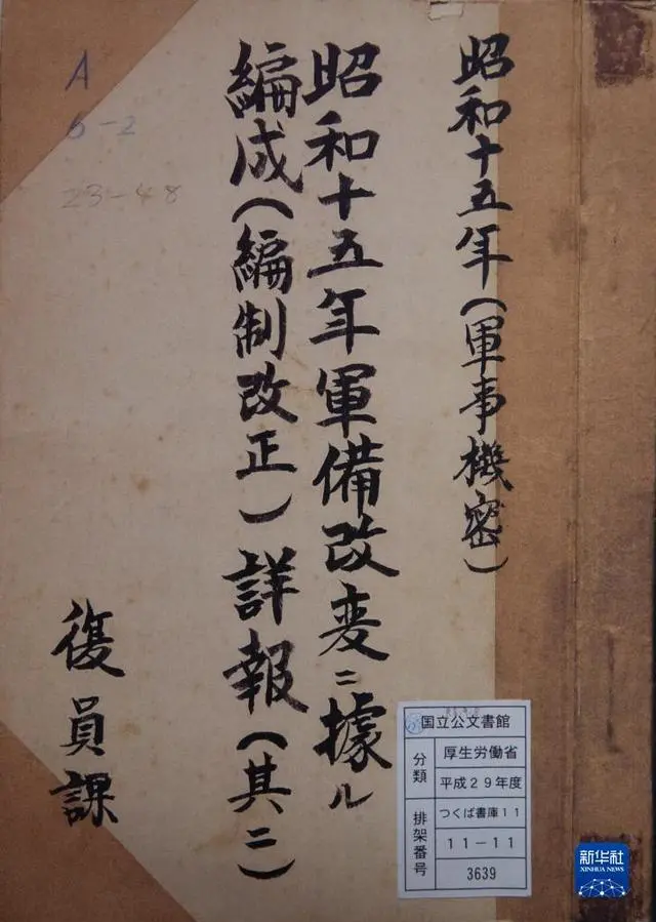 昭和十五年(軍事機密)
昭和十五年軍備改変ニ據ル
編成(編制改正)詳報(其二)
復員課
A
6-2
23-48
国立公文書館
分類
厚生労働省
平成29年度
排架番号
つくば書庫11
11-11
3639
新华社
XINHUA NEWS